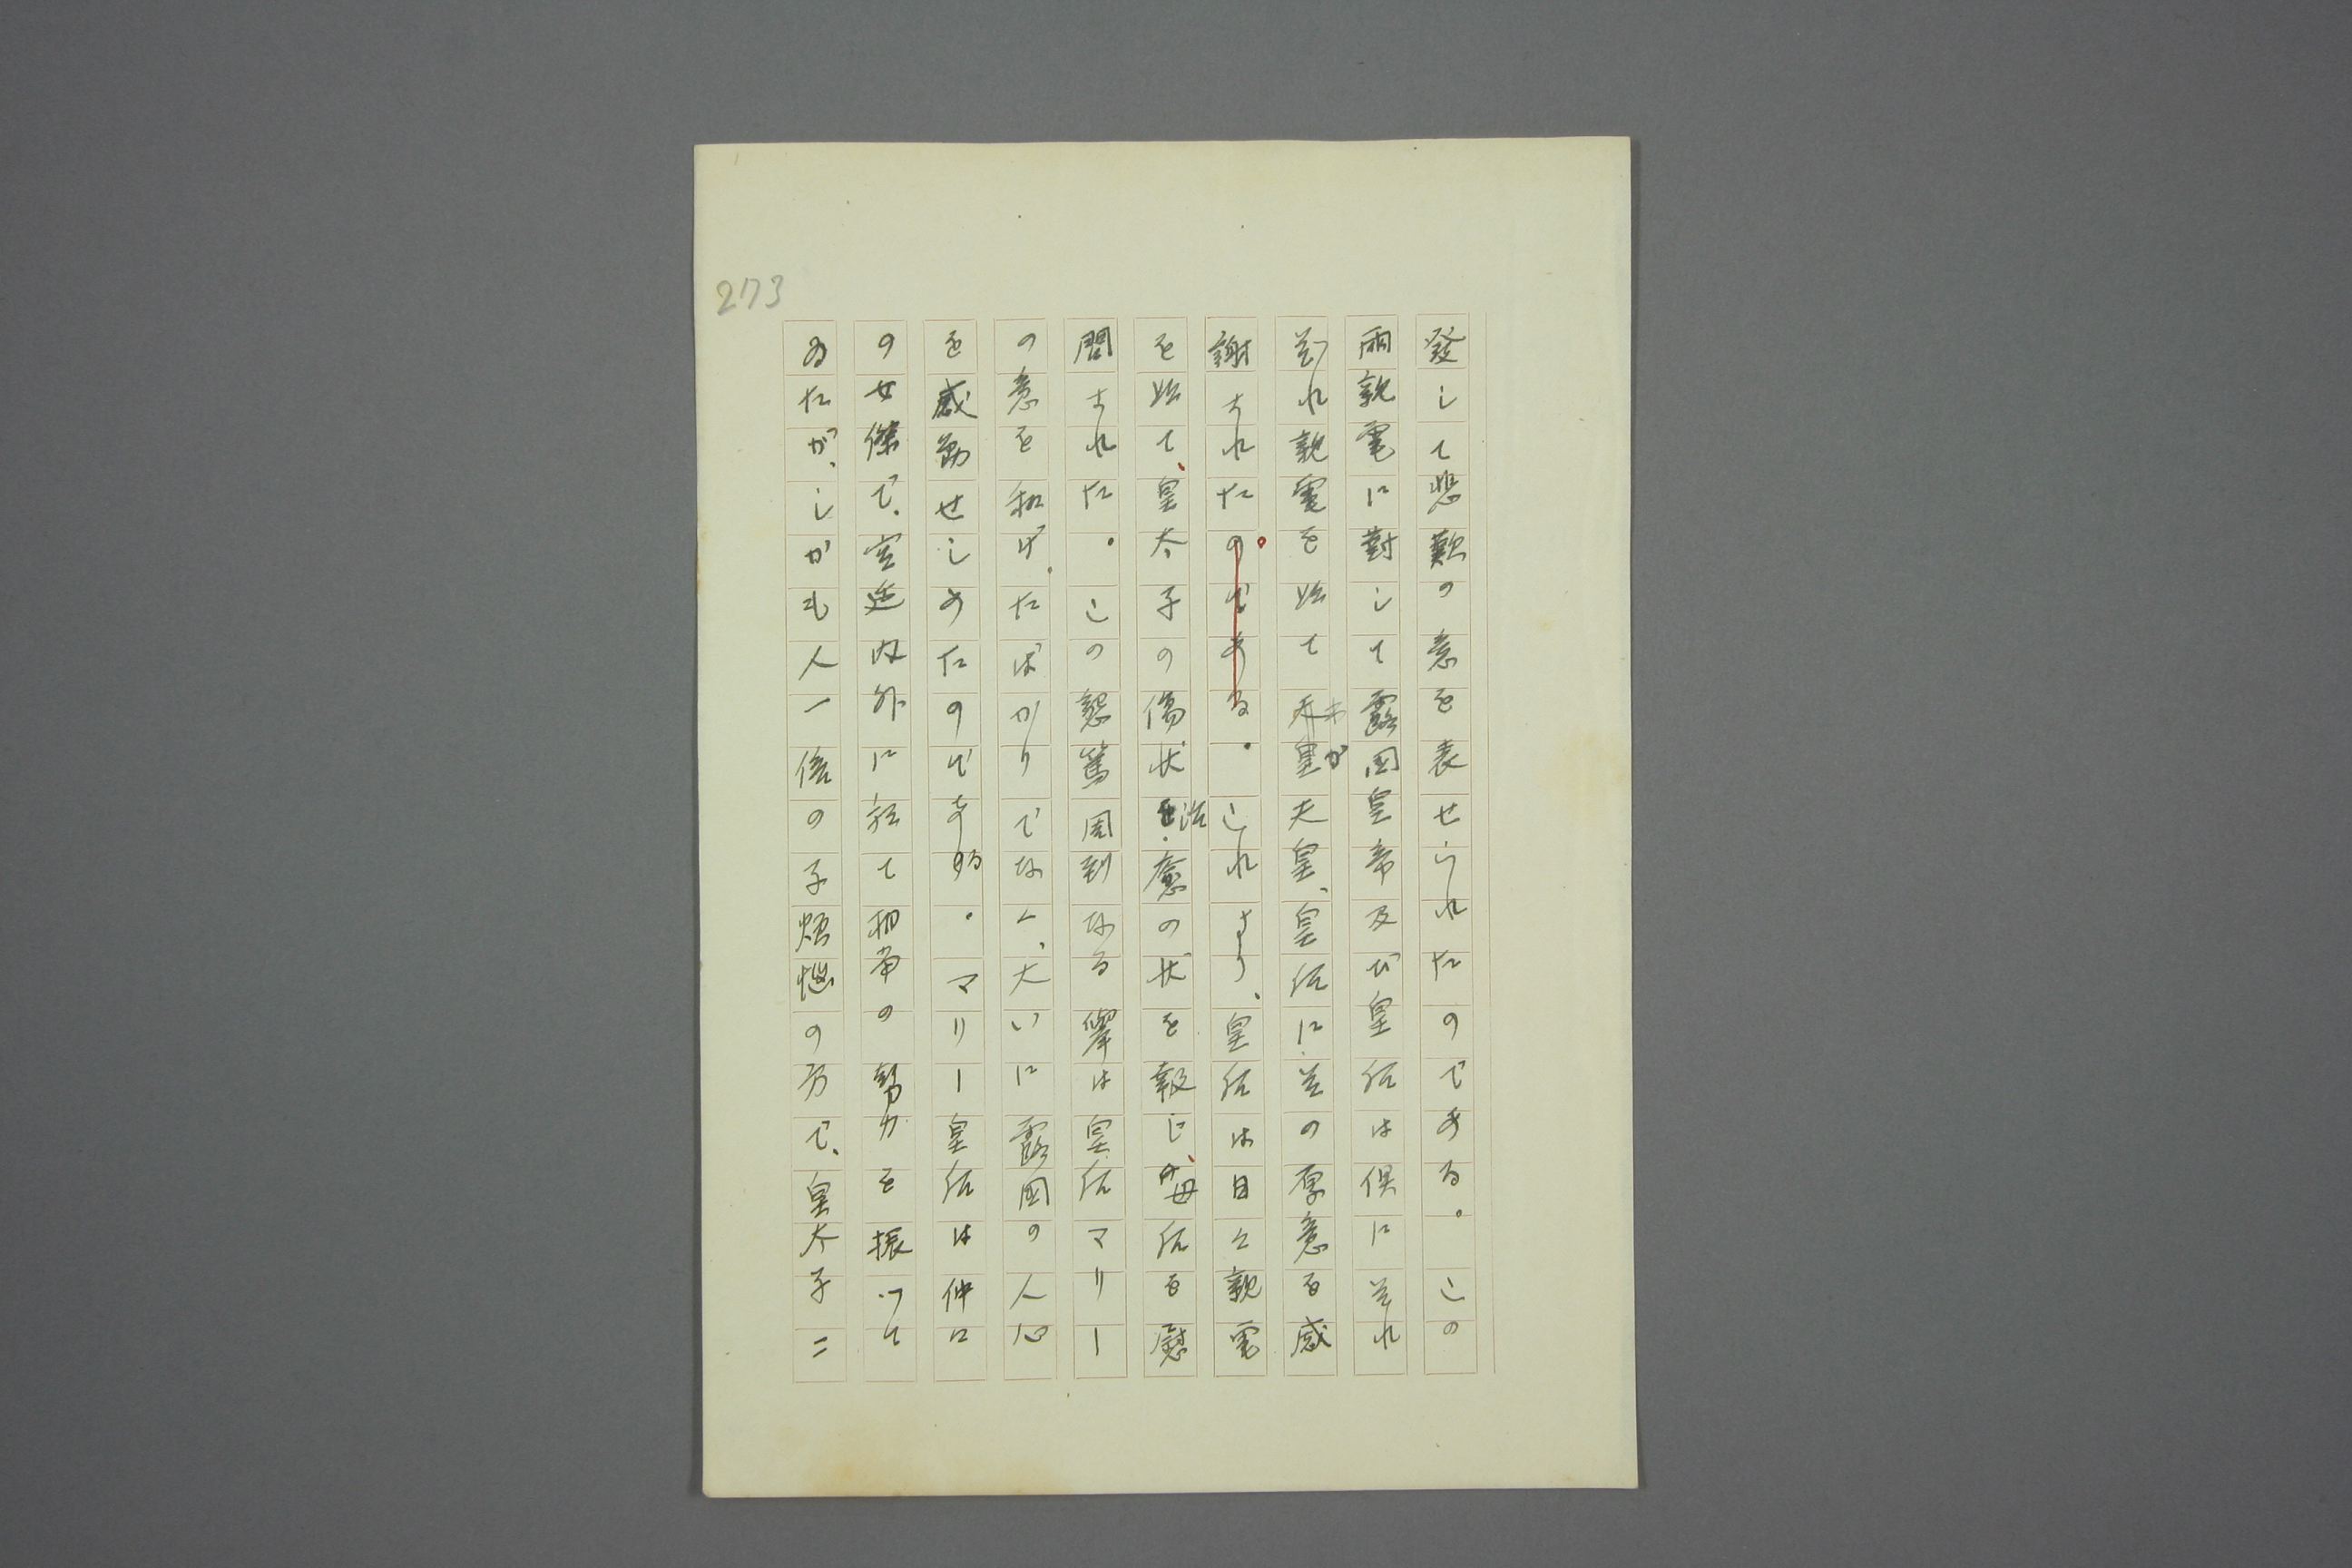 273
發して悲歎の意を表せられたのである。この
兩親電に對して露國皇帝及び皇后は倶に並れ
並れ親電を始て わが 天皇、皇后に並の厚意を感
謝された。これより、皇后は日々親電
を始て、皇太子の傷状治癒の状を報じ、母后を慰
問された。この懇篤周到なる擧は皇后マリー
の意を和げたばかりでなく、大いに露國の人心
を感動せしめたのである。マリー皇后は仲に
の女傑で、宮廷内外に於て相當の勢力を振つて
ゐたが、しかも人一倍の子煩惱の方で、皇太子ニ